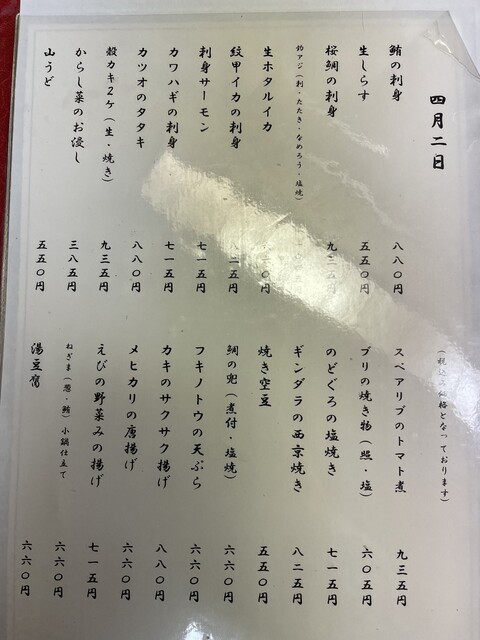 四月二日
鮪の刺身 八八〇円
生しらす 五五〇円
桜鯛の刺身 九三五円
釣アジ(刺・たたき・なめろう・塩焼)
生ホタルイカ 〇円
紋甲イカの刺身 二五円
刺身サーモン 七一五円
カワハギの刺身 七一五円
カツオのタタキ 八八〇円
殻カキ2ケ(生・焼き) 九三五円
からし菜のお浸し 三八五円
山うど 五五〇円
(税込み価格となっております)
スペアリブのトマト煮 九三五円
ブリの焼き物(照・塩) 六〇五円
のどぐろの塩焼き 七一五円
ギンダラの西京焼き 八二五円
焼き空豆 五五〇円
鯛の兜(煮付・塩焼) 六六〇円
フキノトウの天ぷら 六六〇円
カキのサクサク揚げ 八八〇円
メヒカリの唐揚げ 六六〇円
えびの野菜みの揚げ 七一五円
ねぎま(葱・鮪)小鍋仕立て 六六〇円
湯豆腐 六六〇円